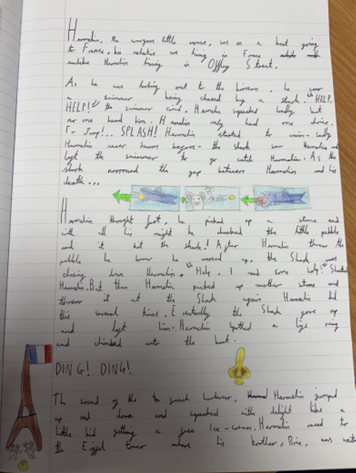 Hamelin, the youngest little mouse, was on a boat going
to France, his relative was living in France
Hamelin living in Street.
As he was looking out to the horizon, he saw
swimmer being chased by a shark. "HELP,
HELP!!" the swimmer cried. Hamelin squeaked loudly but
no one heard him. Hamelin only had one choice.
To Jump!... SPLASH! Hamelin started to swim - sadly
Hamelin never swum before - the shark saw Hamelin and
left the swimmer to go catch Hamelin. As the
shark narrowed the gap between Hamelin and his
death...
Hamelin thought fast, he picked up a stone and
with all his might he chucked the little pebble
and it hit the shark! After Hamelin threw the
pebble he knew he messed up. The Shark was
chasing down Hamelin. "Help, I need some help!"
Hamelin. But then Hamelin picked up another stone and
threw it at the Shark again Hamelin did
this several times. Eventually the Shark gave up
and left him. Hamelin spotted a life ring
and climbed onto the boat.
DING! DING!
The sound of the french Hamelin jumped
up and down and squeaked with delight like a
little kid getting a free Ice-cream. Hamelin need to
the Eiffel tower where his brother, was